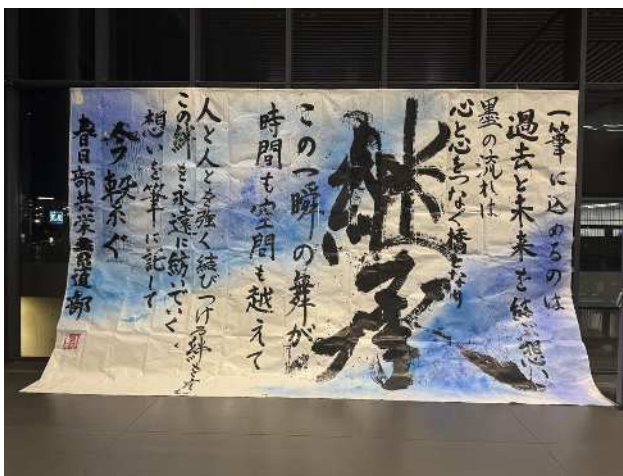 一筆に込めるのは
過去と未来を結ぶ想い
墨の流れは
心と心をつなぐ橋となり
継承
この一瞬の舞が
時間も空間も越えて
人と人とを強く結びつける絆となる
この絆を永遠に紡いでいく
想いを筆に託して
今繋ぐ
春日部共栄書道部